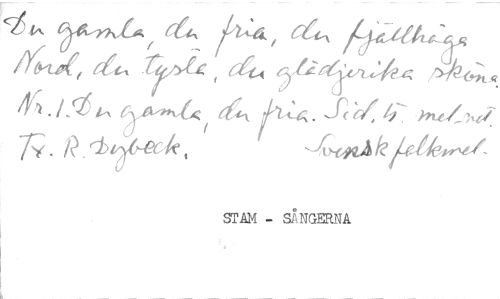 Du gamla, du fria, du fjällhöga
Nord, du tysta, du glädjerika sköna.
Nr.1. Du gamla, du fria. Sid. 5. mel. not.
Tx. R. Dybeck. Svensk folkmel.
STAM - SÅNGERNA